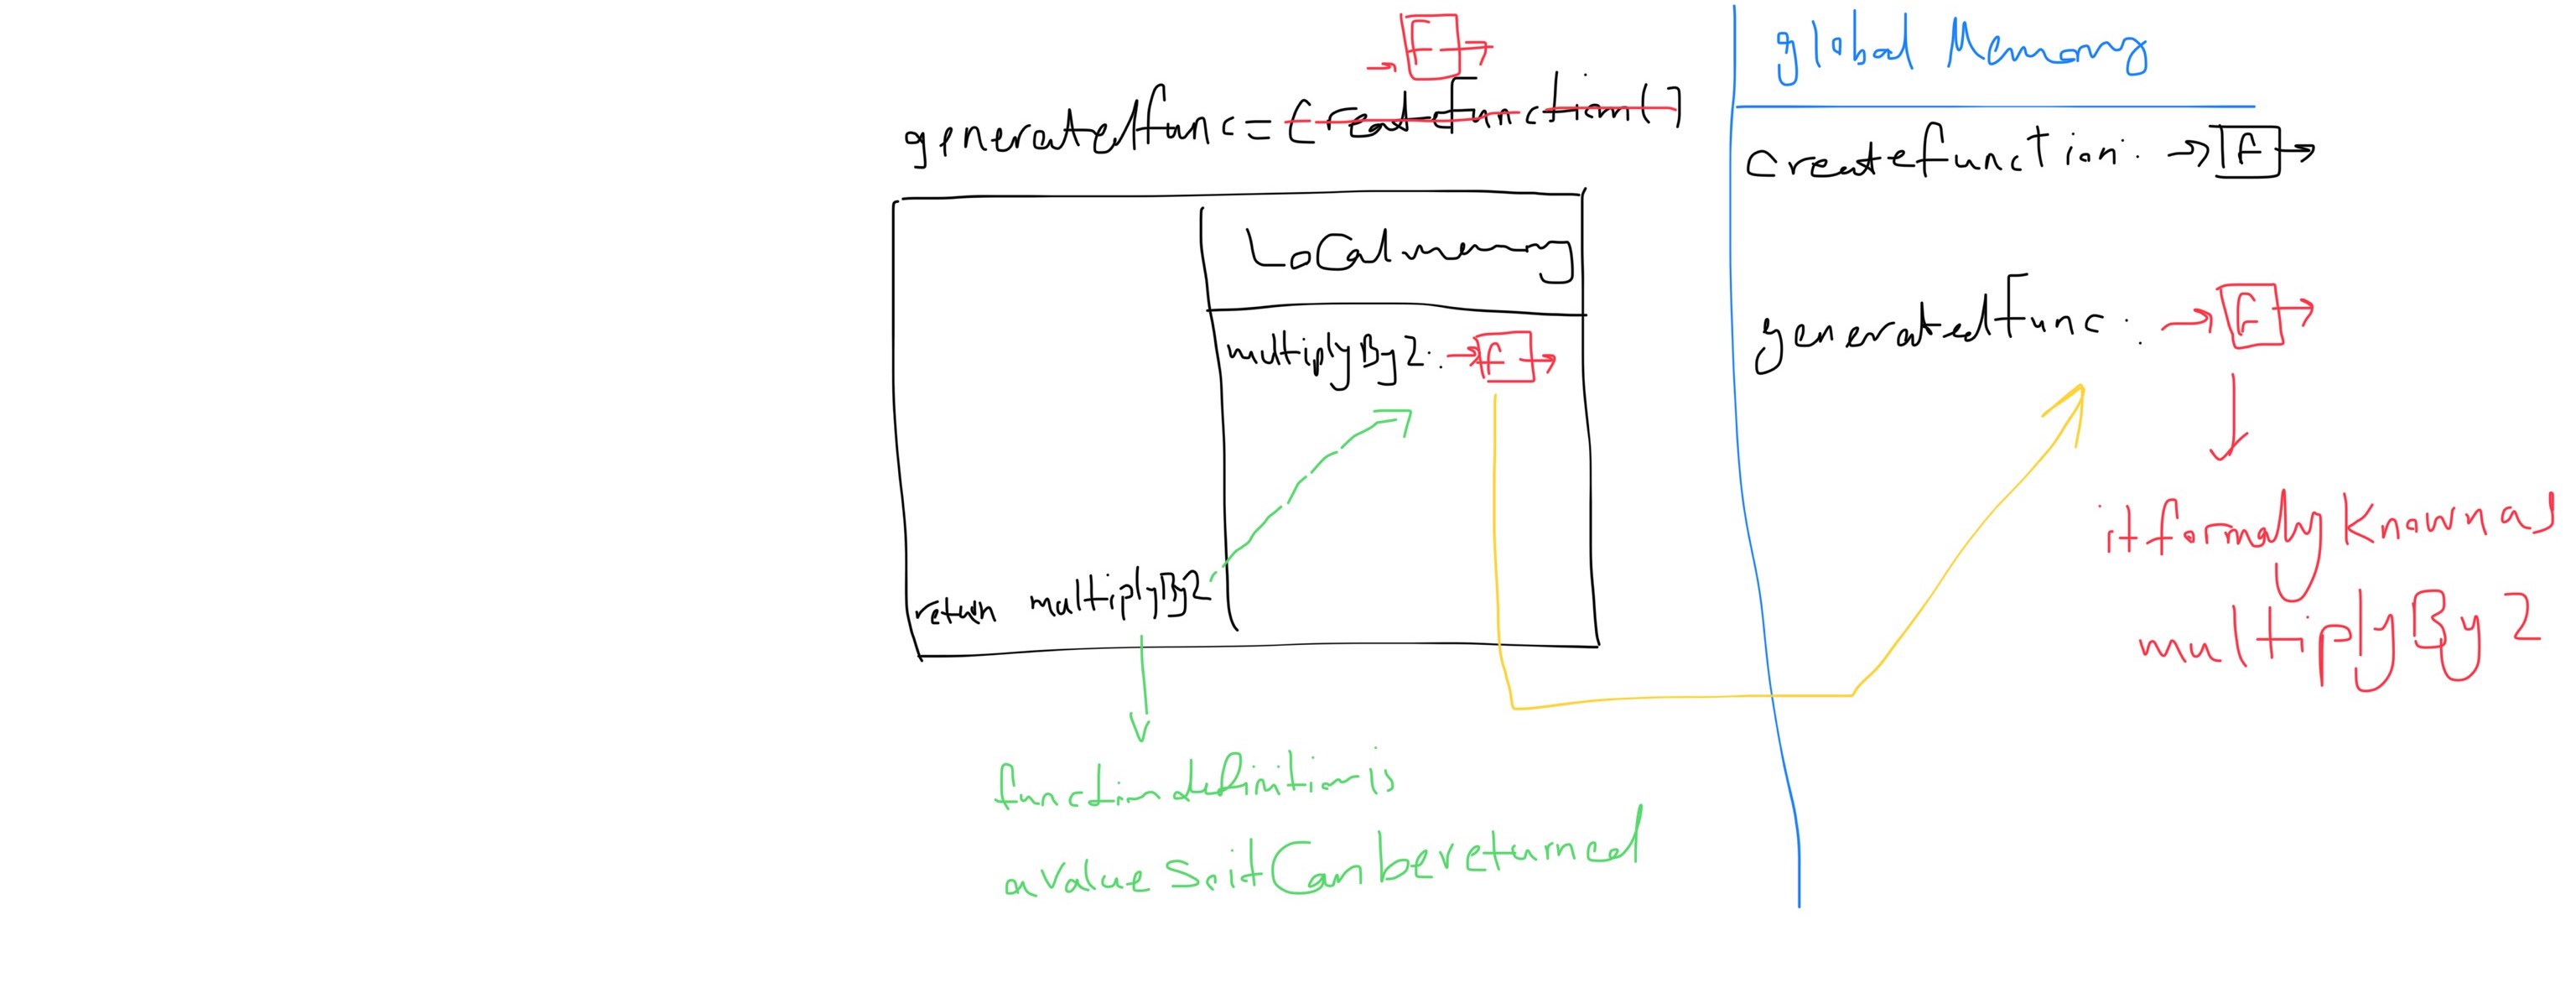 F
generatedfunc = Createfunction()
Local memory
multiplyBy2: f
return multiplyBy2
function definition is
a value so it Can be returned
global Memory
createfunction: f
generatedfunc: f
it formaly Known as
multiplyBy2